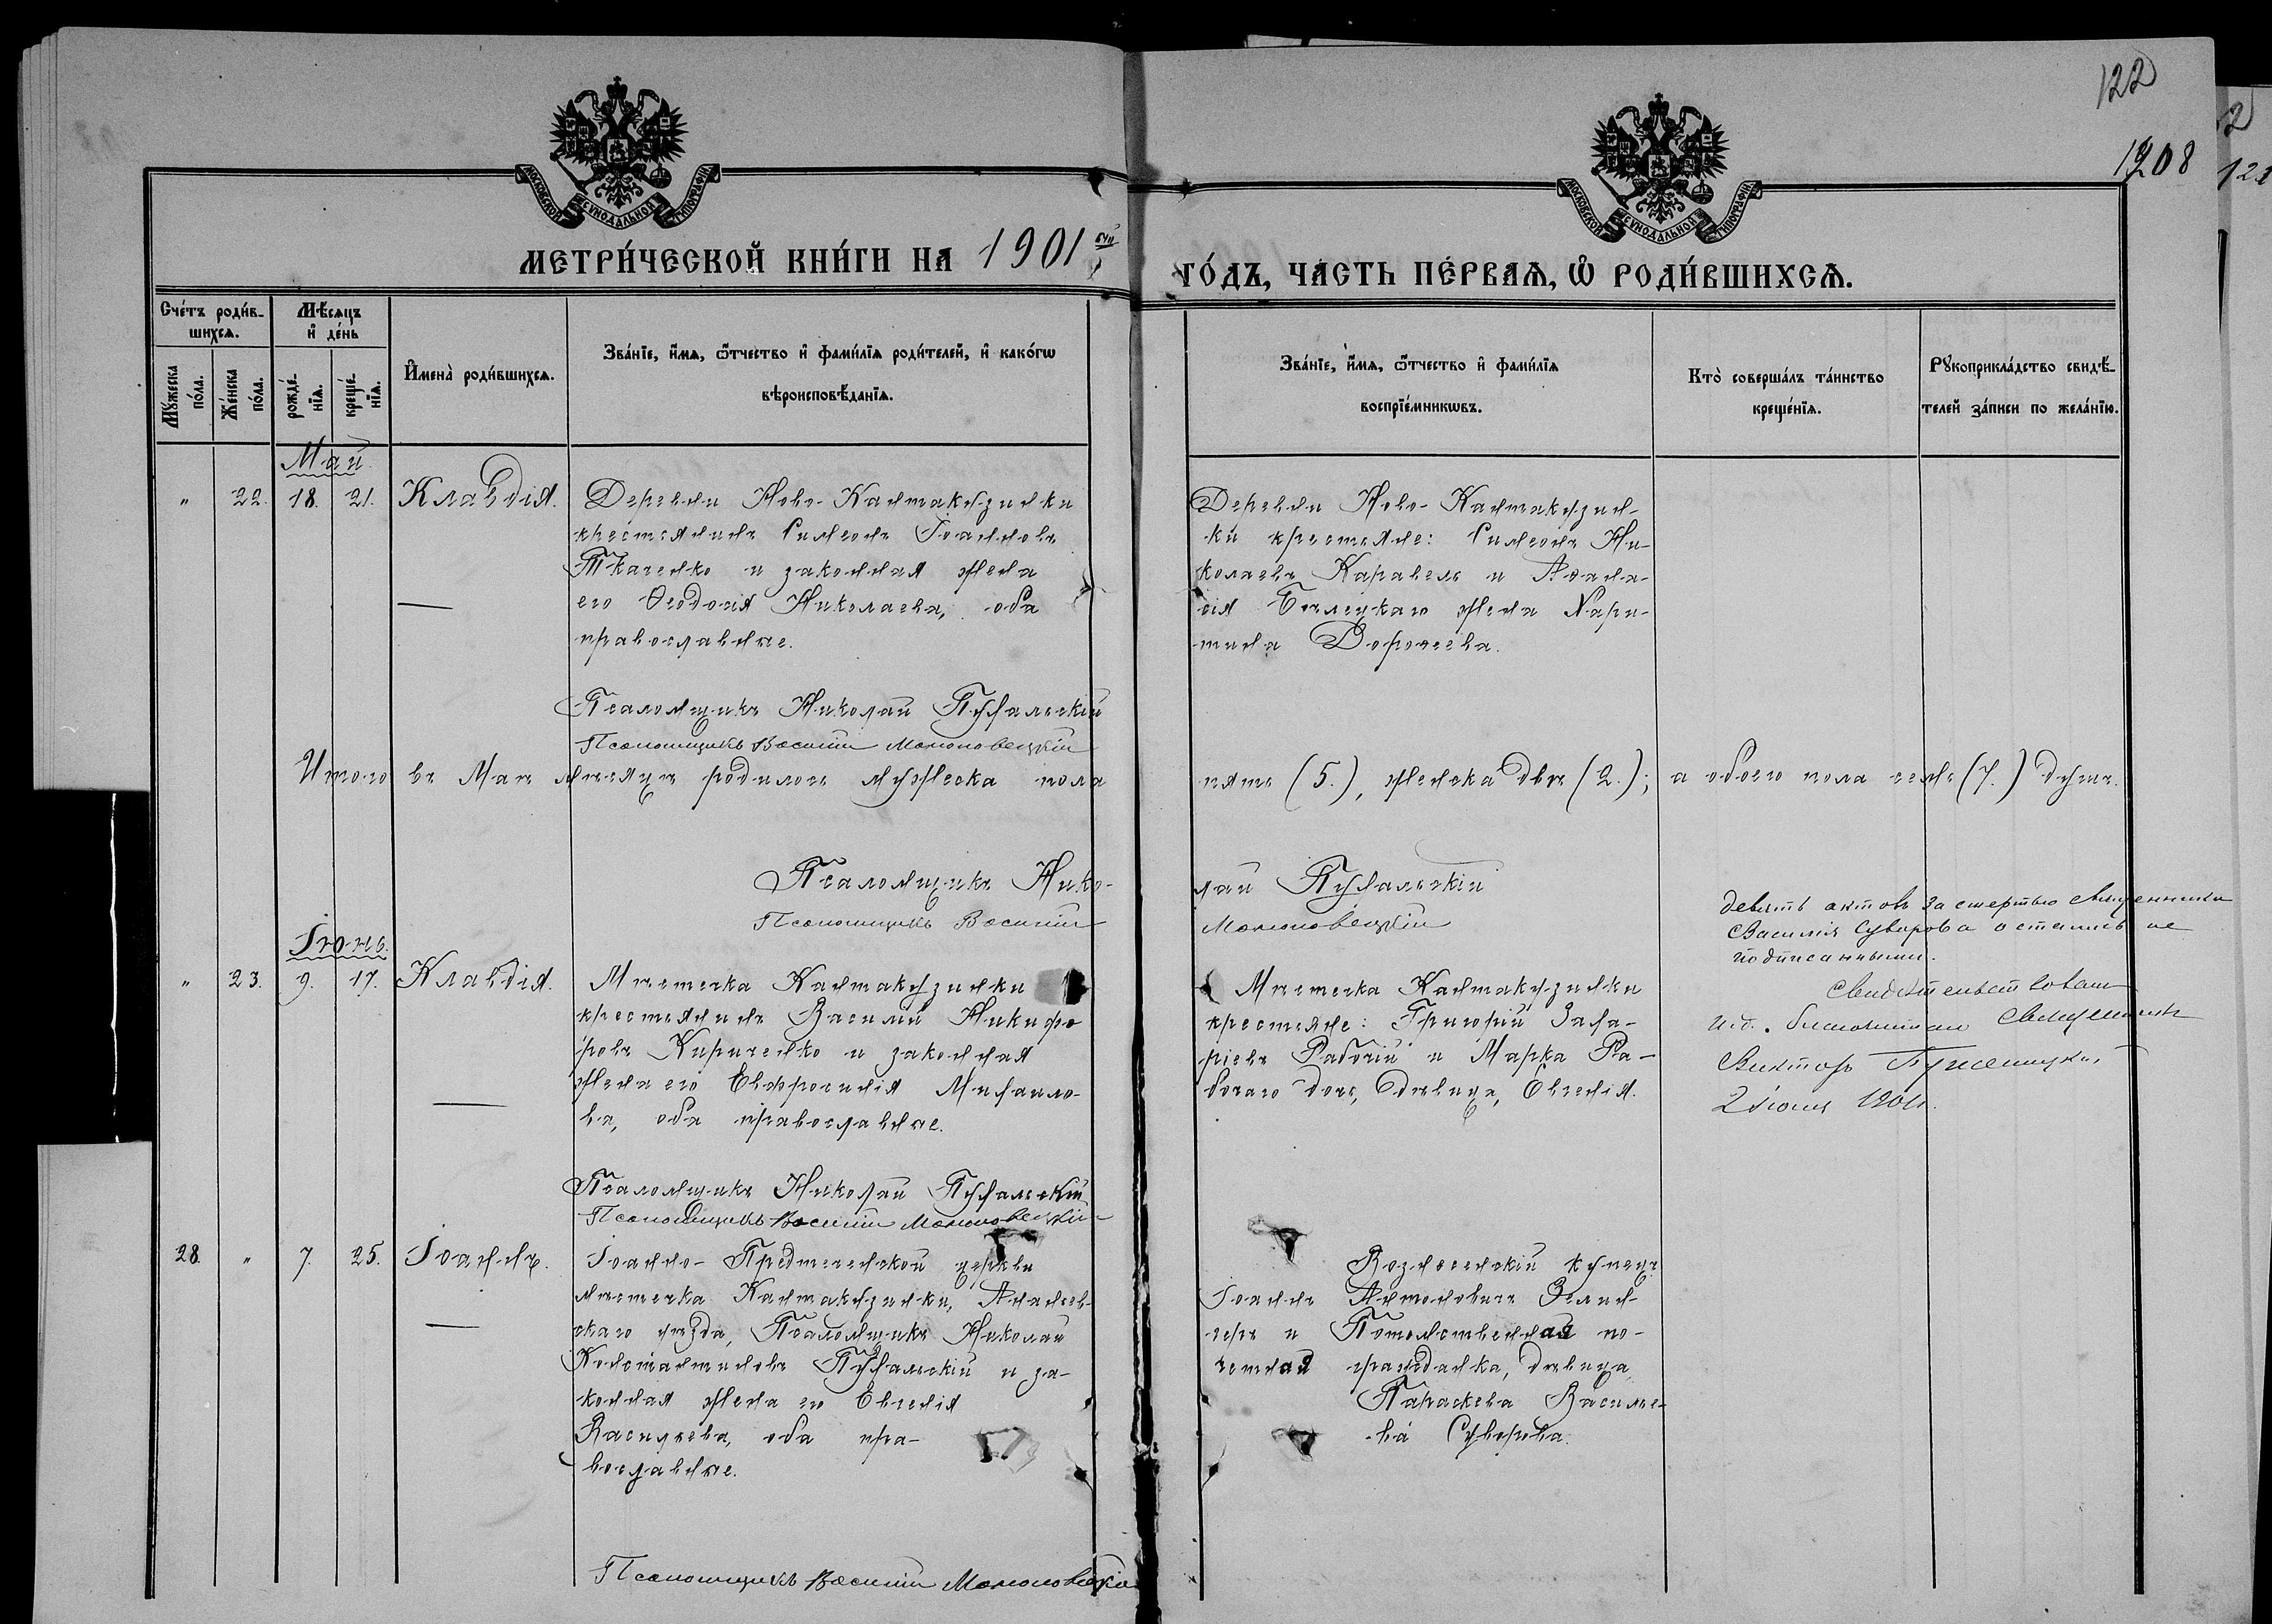 122
1908
МОСКОВСКОЙ СѴНОДАЛЬНОЙ ТИПОГРАФІИ
МОСКОВСКОЙ СѴНОДАЛЬНОЙ ТИПОГРАФІИ
МЕТРИ́ЧЕСКОЙ КНИ́ГИ НА 1901 ый
ГО́ДЪ, ЧА́СТЬ ПЕ́РВАЯ, Ѡ РОДИ́ВШИХСЯ.
Сче́тъ роди́в-
шихся.
Мѣ́сяцъ
и де́нь
Му́жеска по́ла.
Же́нска по́ла.
рожде́-нія.
креще́-нія.
Имена̀ роди́вшихся.
Зва́ніе, и́мя, ѻ҆́тчество и фами́лія роди́телей, и како́гѡ
вѣроисповѣ́данія.
Зва́ніе, и́мя, ѻ҆́тчество и фами́лія
воспріе́мникѡвъ.
Кто̀ соверша́лъ та́инство
креще́нія.
Рукоприкла́дство свидѣ́-
телей за́писи по жела́нію.
Май.
" 22. 18. 21. Клавдія.
Деревни Ново-Кантакузинки
крестьянинъ Симеонъ Іоанновъ
Ткаченко и законная жена
его Ѳеодосія Николаева, оба
православные.
Деревни Ново-Кантакузин-
ки крестьяне: Симеонъ Ни-
колаевъ Каравель и Аѳана-
сія жена Хари-
тина Дороѳеева.
Псаломщикъ Николай Пухальскій
Псаломщикъ Василій
Итого въ Маѣ мѣсяцѣ родилось мужеска пола
пять (5.), женска двѣ (2.); а обоего пола семь (7.) душъ.
Псаломщикъ Нико-
лай Пухальскій
Псаломщикъ Василій
Девять актовъ за смертью священника
Василія Суворова остались не
подписанными.
Свидѣтельствовалъ
и.д. Священникъ
Викторъ
2 іюля 1901 г.
Іюнь.
" 23. 9. 17. Клавдія.
Мѣстечка Кантакузинки
крестьянинъ Василій Никифо-
ровъ Кириченко и законная
жена его Евфросинія Михаило-
ва, оба православные.
Мѣстечка Кантакузинки
крестьяне: Григорій Заха-
ріевъ Рабочій и Марка Ра-
бочаго дочь, дѣвица, Евгенія.
Псаломщикъ Николай Пухальскій
Псаломщикъ Василій
28. " 7. 25. Іоаннъ.
Іоанно-Предтеченской церкви
мѣстечка Кантакузинки, Ананьев-
скаго уѣзда, Псаломщикъ Николай
Константиновъ Пухальскій и за-
конная жена его Евгенія
Васильева, оба пра-
вославные.
Вознесенскій купецъ
Іоаннъ Антоновичъ Зелин-
геръ и Потомственная по-
четная гражданка, дѣвица,
Параскева Василье-
ва Суворова.
Псаломщикъ Василій